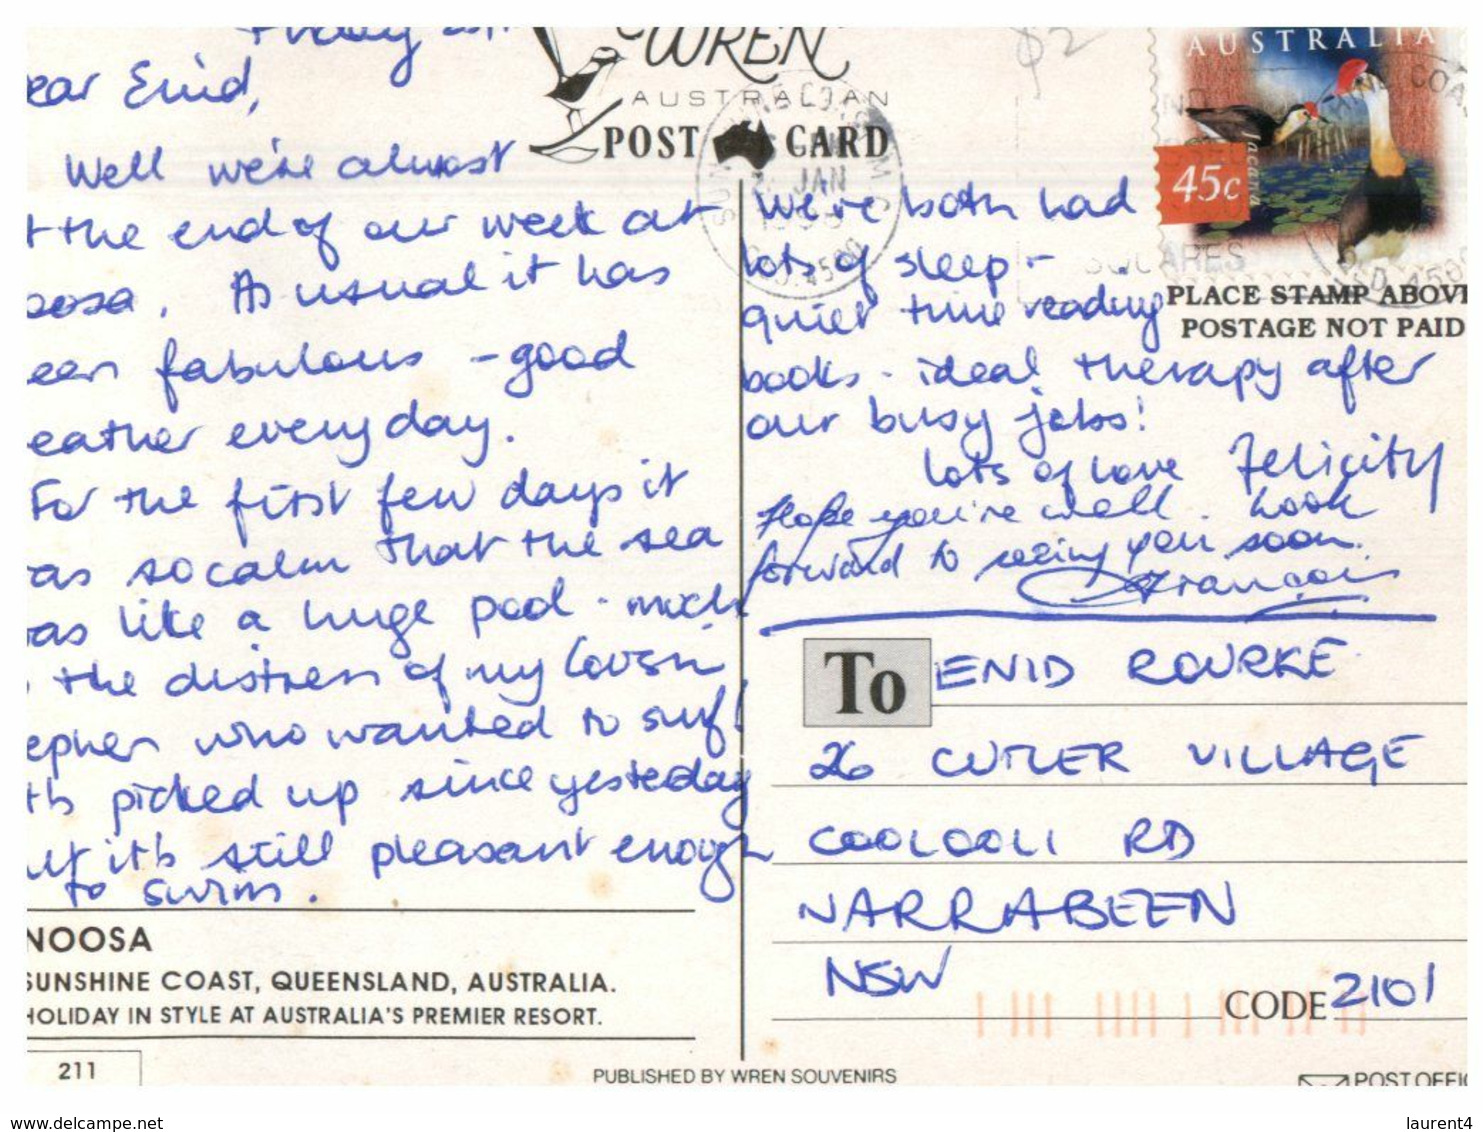 ear Enid,
Well we're almost
t the end of our week at
oosa. As usual it has
een fabulous - good
eather everyday.
For the first few days it
as so calm that the sea
as like a huge pool - much
the distress of my cousin
epher who wanted to surf!
It's picked up since yesterday
ut it's still pleasant enough
to swim.
NOOSA
SUNSHINE COAST, QUEENSLAND, AUSTRALIA.
HOLIDAY IN STYLE AT AUSTRALIA'S PREMIER RESORT.
211
WREN
AUSTRALIAN
POST CARD
JAN
AUSTRALIA
45c
Jacana
PLACE STAMP ABOVE
POSTAGE NOT PAID
We've both had
lots of sleep -
quiet time reading
books - ideal therapy after
our busy jobs!
Lots of love Felicity
Hope you're well. Look
forward to seeing you soon.
François
To ENID ROURKE
26 CUTLER VILLAGE
COOLOOLI RD
NARRABEEN
NSW
CODE 2101
PUBLISHED BY WREN SOUVENIRS
POST OFFIC
www.delcampe.net
laurent4